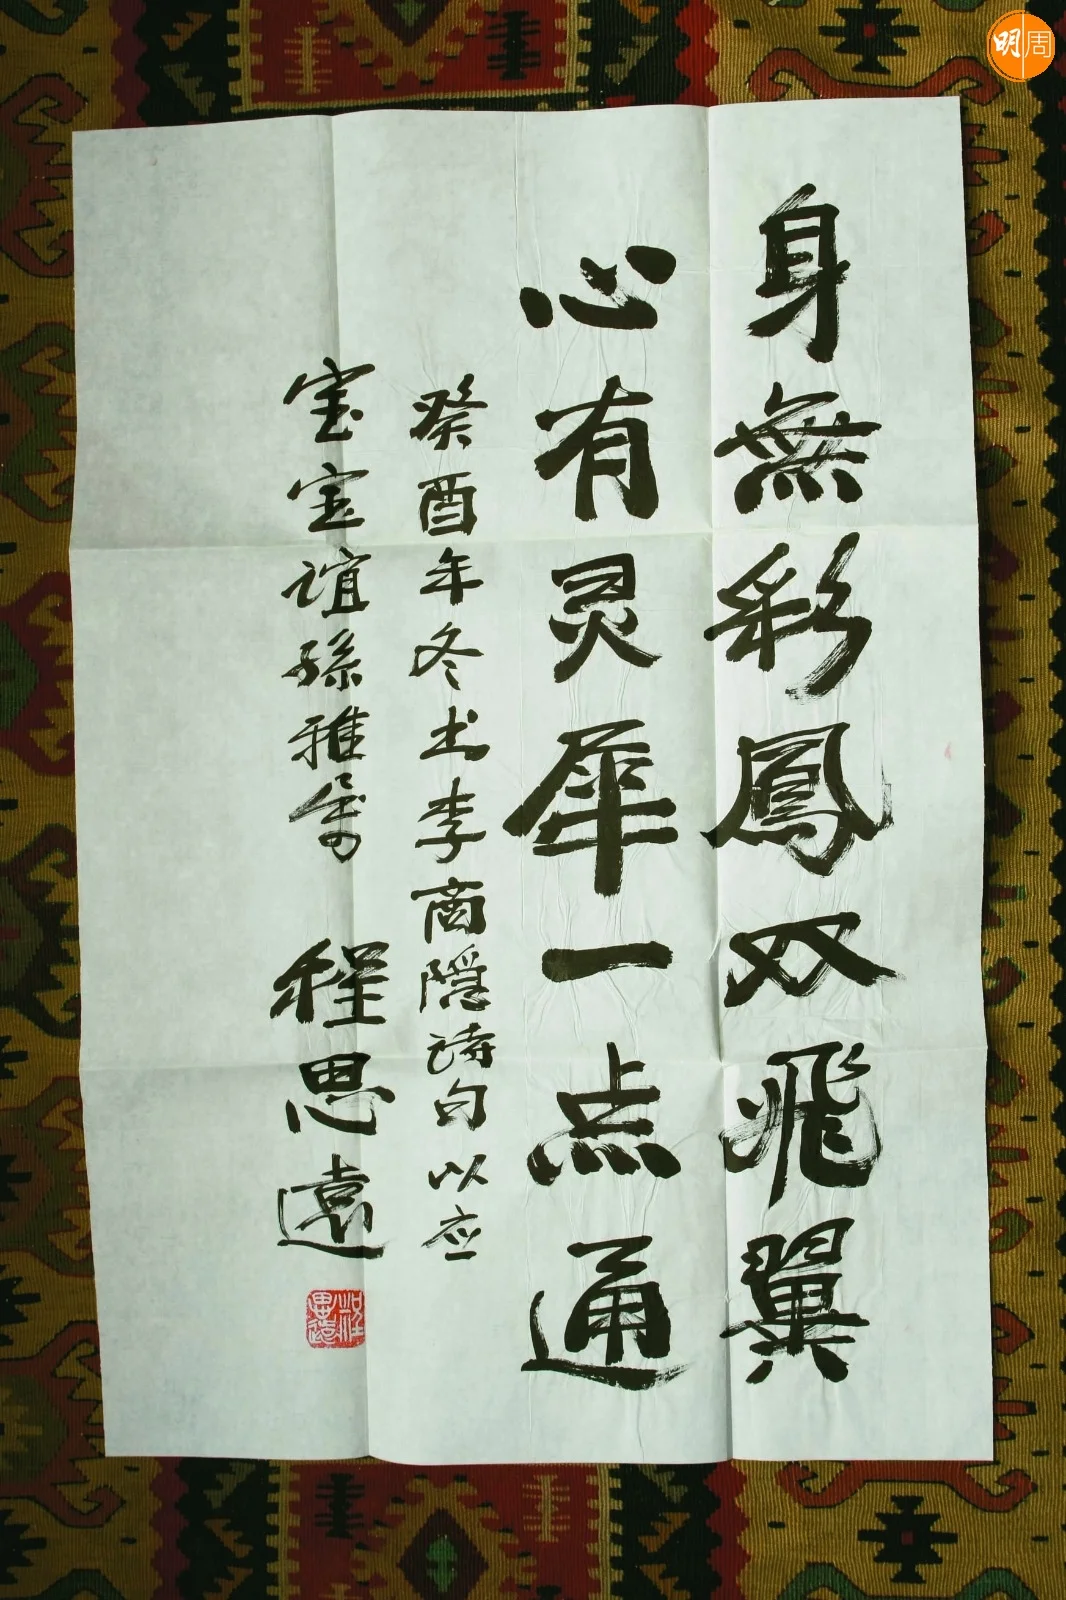 身無彩鳳双飛翼
心有灵犀一点通
癸酉年冬书李商隱诗句以应
宝宝谊孫雅属
程思遠
程思遠
明周